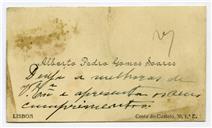 Alberto Pedro Gomes Soares
Deseja a melhoras de
V. Exª e apresenta os seus
cumprimentos
LISBOA
Costa do Castelo,